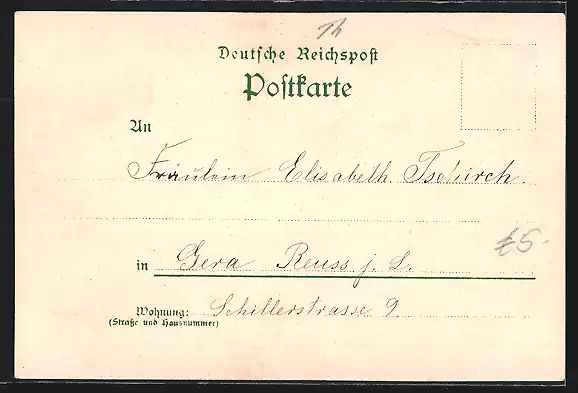 Th
Deutsche Reichspost
Postkarte
An
Fräulein Elisabeth Tschirch.
in Gera Reuss j. L.
£5-
Wohnung: Schillerstrasse 9
(Straße und Hausnummer)